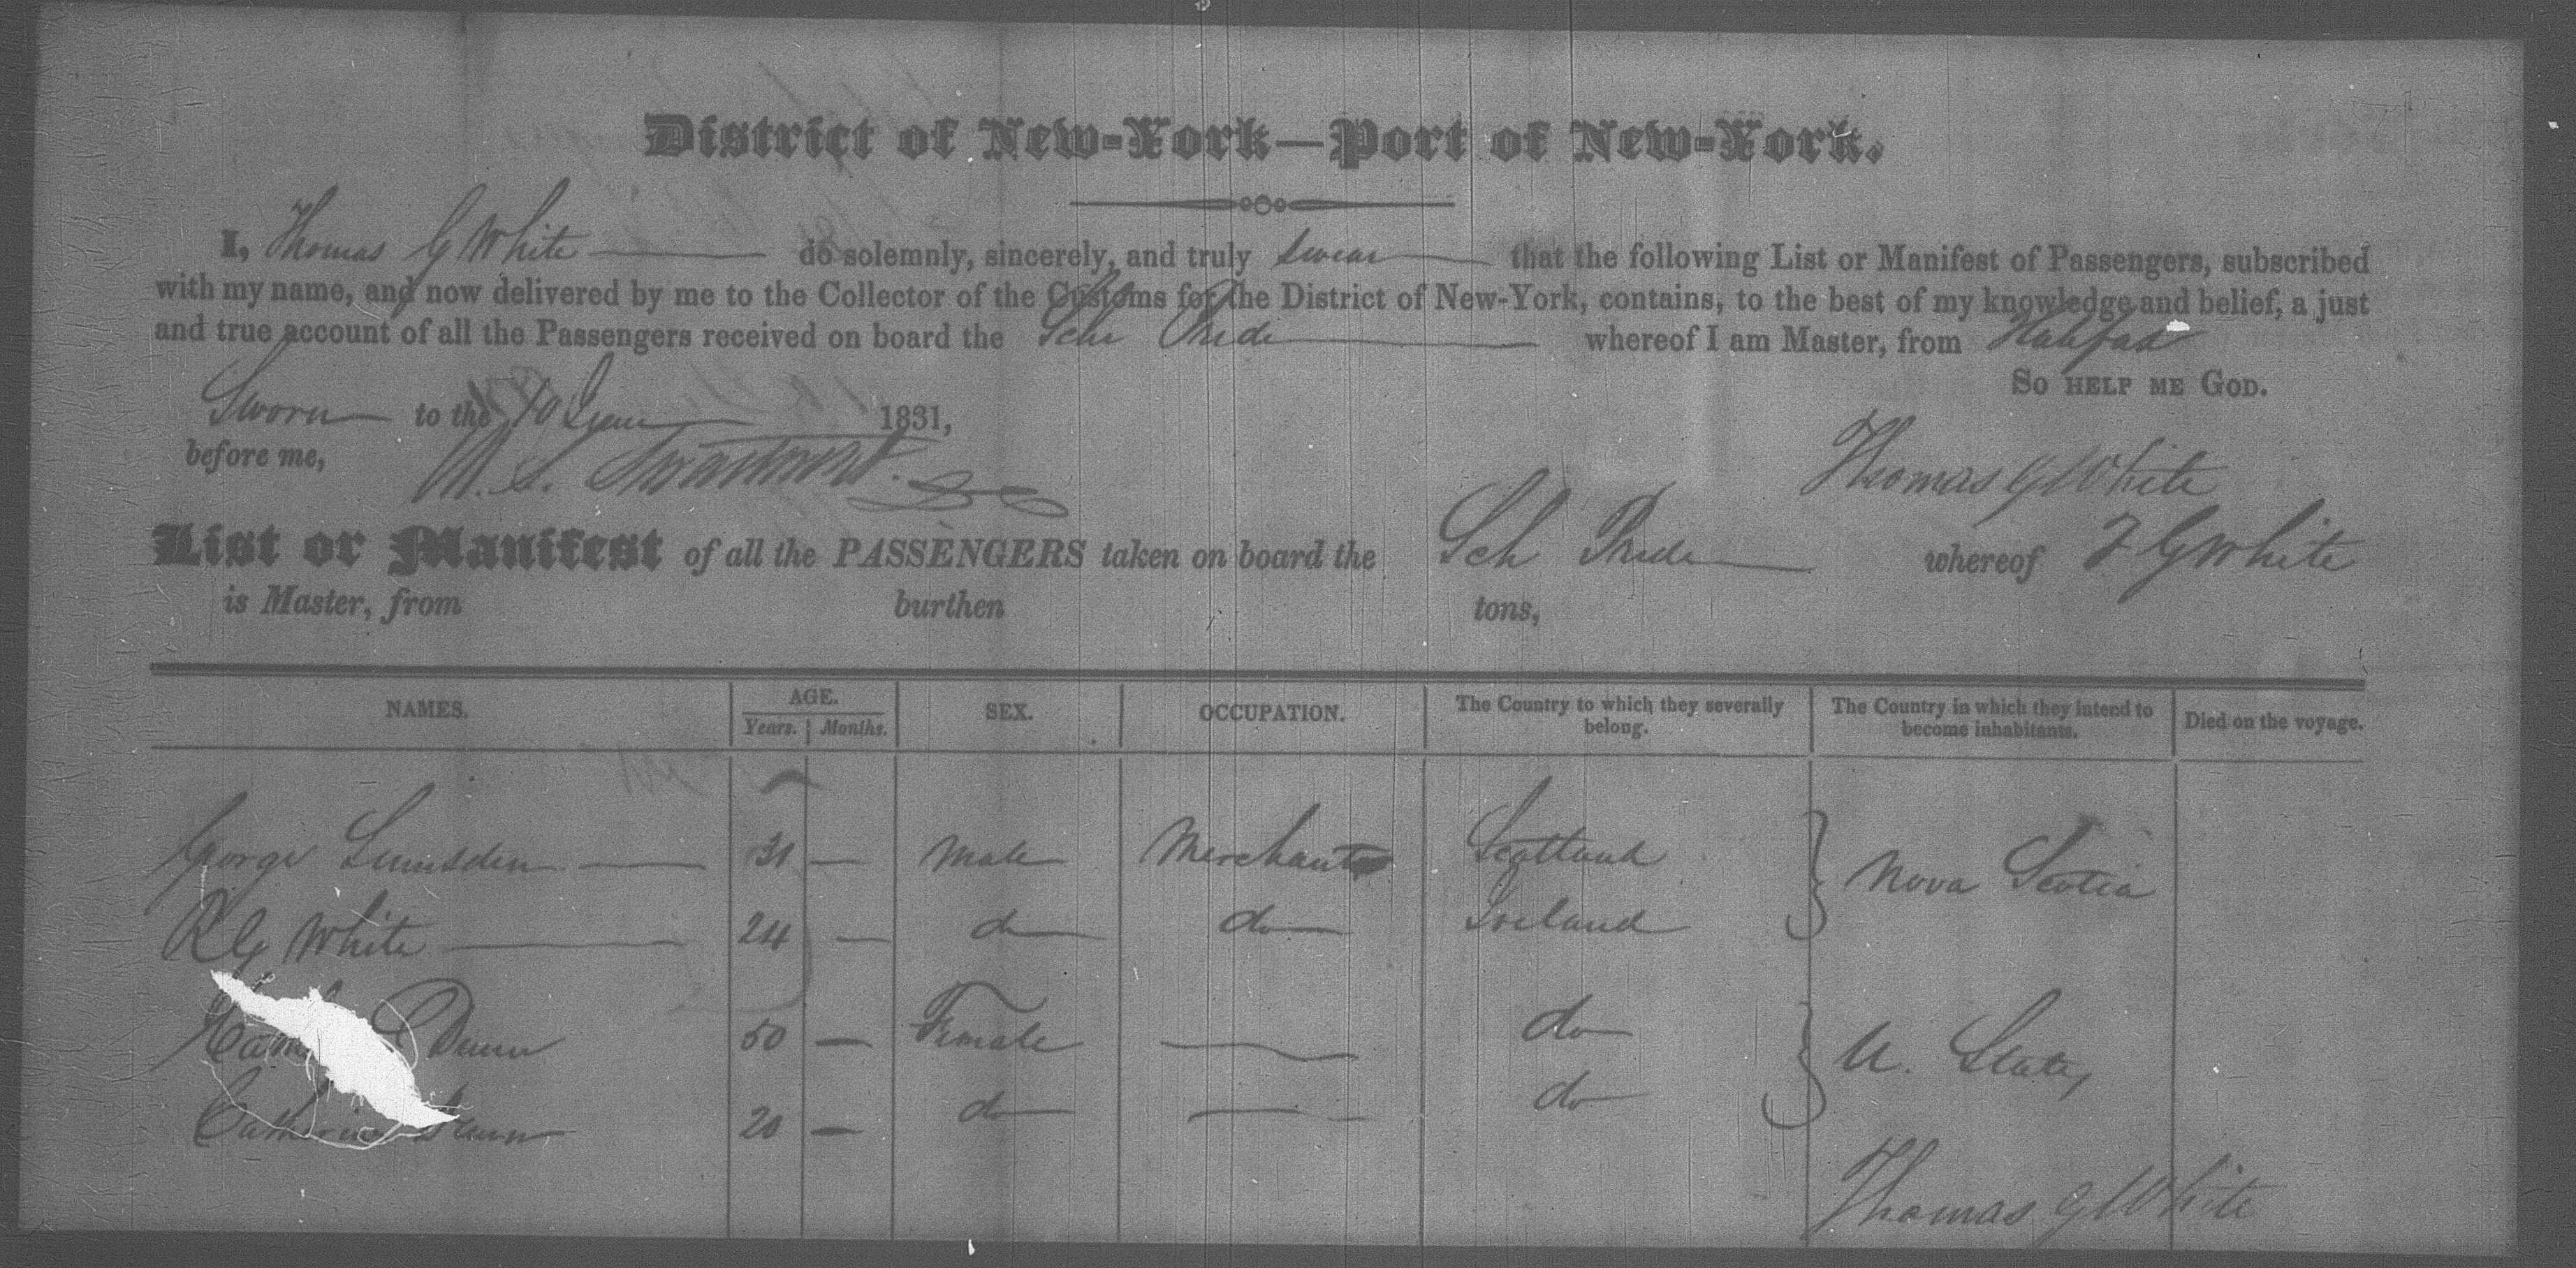 District of New-York—Port of New-York.
I, Thomas G White do solemnly, sincerely, and truly swear that the following List or Manifest of Passengers, subscribed
with my name, and now delivered by me to the Collector of the Customs for the District of New-York, contains, to the best of my knowledge and belief, a just
and true account of all the Passengers received on board the Sch Pride whereof I am Master, from Halifax
So help me God.
Sworn to the 10 1831,
before me,
Thomas G White
List or Manifest of all the PASSENGERS taken on board the Sch Pride whereof T G White
is Master, from burthen tons,
NAMES. AGE. Years. Months. SEX. OCCUPATION. The Country to which they severally belong. The Country in which they intend to become inhabitants. Died on the voyage.
George Lumsden 31 — Male Merchant Scotland
Nova Scotia
R G White 24 — do do Ireland
Dunn 50 — Female — do
U. States
Catherine Dunn 20 — do — do
Thomas G White